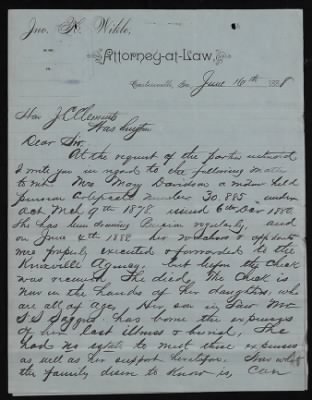 Jno. H. Wikle,
Attorney-at-Law,
Cartersville, Ga., June 16th 1888
Hon J. C. Clements
Washington
Dear Sir.
At the request of the parties interested
I write you in regard to the following matter
to wit. Mrs May Davidson a widow held
pension Certificate number 30,885 under
Act Mch 9th 1878, issued 6th Dec 1880.
She has been drawing Pension regularly, and
on June 4th 1888 her vouchers &
were properly executed & forwarded to the
Knoxville Agency, but before the Check
was received, She died, The Check is
now in the hands of her daughters, who
are all of age, Her son in law Mr
S S has borne the expenses
of her last illness & burial, She
had no estate to meet these expenses
as well as her support heretofore. Now what
the family desire to know is, can